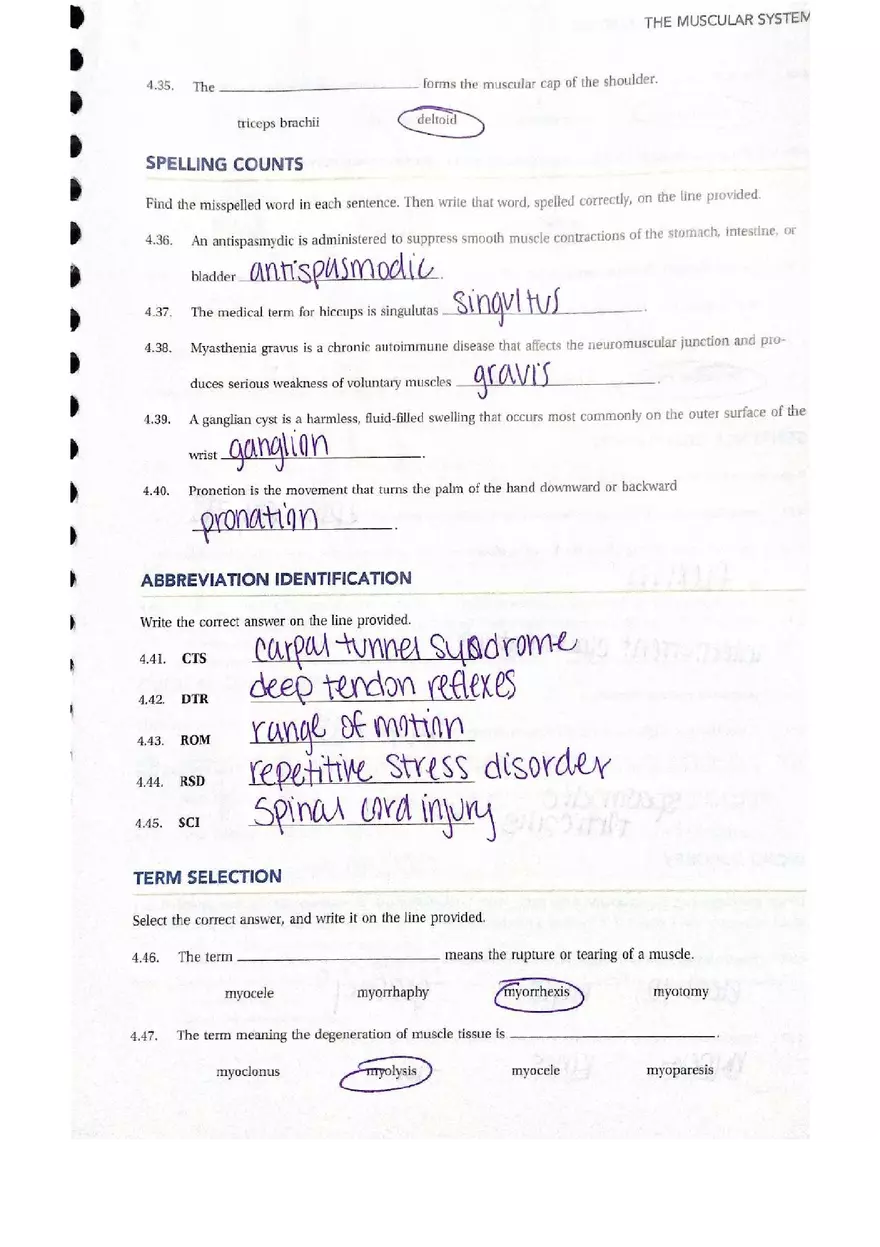 THE MUSCULAR SYSTEM
4.35. The ____ forms the muscular cap of the shoulder.
triceps brachii deltoid
SPELLING COUNTS
Find the misspelled word in each sentence. Then write that word, spelled correctly, on the line provided.
4.36. An antispasmydic is administered to suppress smooth muscle contractions of the stomach, intestine, or
bladder antispasmodic.
4.37. The medical term for hiccups is singulutas singultus.
4.38. Myasthenia gravus is a chronic autoimmune disease that affects the neuromuscular junction and pro-
duces serious weakness of voluntary muscles gravis.
4.39. A ganglian cyst is a harmless, fluid-filled swelling that occurs most commonly on the outer surface of the
wrist ganglion.
4.40. Pronetion is the movement that turns the palm of the hand downward or backward
pronation.
ABBREVIATION IDENTIFICATION
Write the correct answer on the line provided.
4.41. CTS carpal tunnel syndrome
4.42. DTR deep tendon reflexes
4.43. ROM range of motion
4.44. RSD repetitive stress disorder
4.45. SCI spinal cord injury
TERM SELECTION
Select the correct answer, and write it on the line provided.
4.46. The term ____ means the rupture or tearing of a muscle.
myocele myorrhaphy myorrhexis myotomy
4.47. The term meaning the degeneration of muscle tissue is ____.
myoclonus myolysis myocele myoparesis